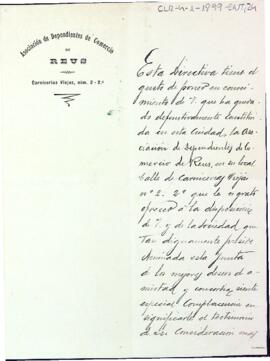 CLR-4-2-1899-ENT,24
Asociación de Dependientes de Comercio
DE
REUS
Carnicerías Viejas, núm. 2 - 2.º
Esta Directiva tiene el
gusto de poner en conoci-
miento de V. que ha queda-
do definitivamente constitui-
da en esta Ciudad, la Aso-
ciación de Dependientes de Co-
mercio de Reus, en su local
Calle de Carnicerías Viejas
nº 2. 2º que le es grato
ofrecer a la disposición
de V. y de la Sociedad que
tan dignamente preside
Animada esta Junta
de los mejores deseos de a-
mistad y concordia, siente
especial Complacencia en
significarle el testimonio
de su Consideración mas